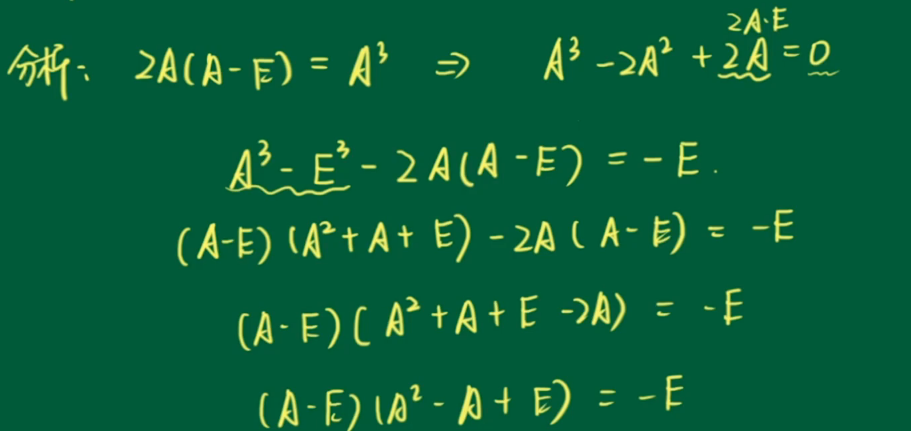 2A·E
分析: 2A(A-E) = A³ ⇒ A³ -2A² + 2A = 0
A³ - E³ - 2A(A-E) = -E.
(A-E)(A²+A+E) -2A(A-E) = -E
(A-E)(A²+A+E-2A) = -E
(A-E)(A²-A+E) = -E